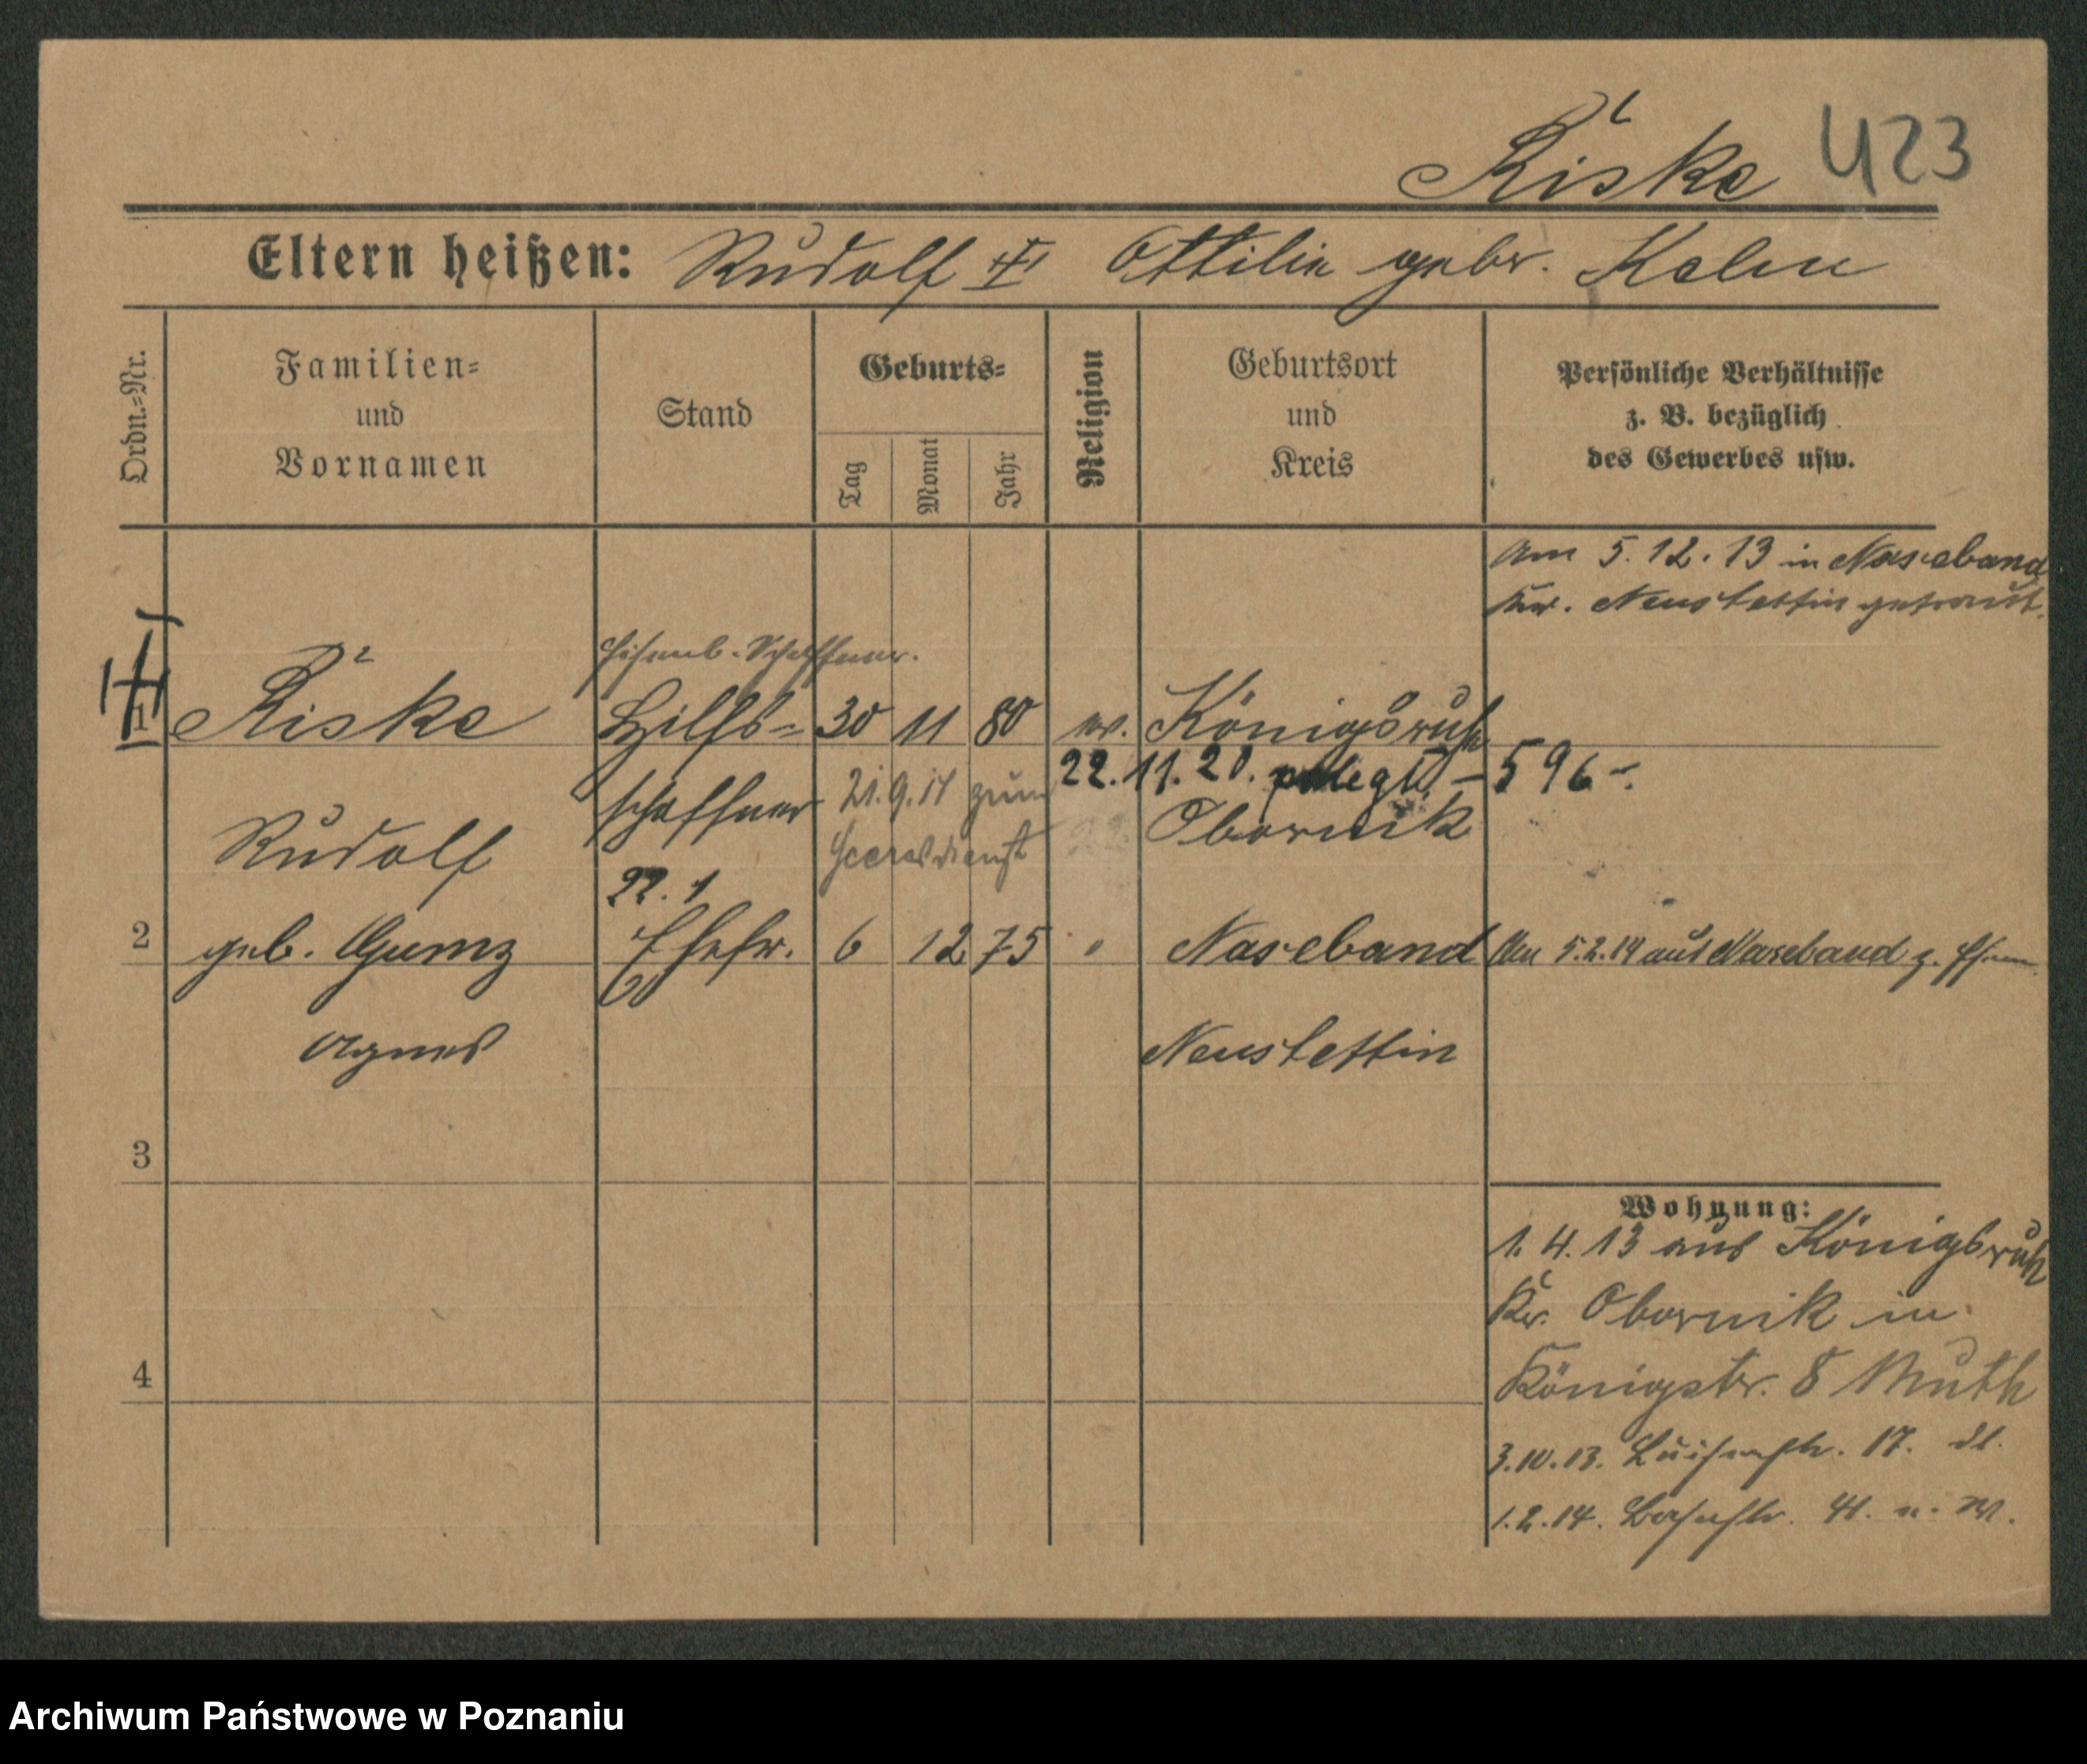 Riske 423
Eltern heißen: Rudolf Ottilie gebr. Kelm
Ordn.-Nr.
Familien-
und
Vornamen
Stand
Geburts-
Tag
Monat
Jahr
Religion
Geburtsort
und
Kreis
Persönliche Verhältnisse
z. B. bezüglich
des Gewerbes usw.
Am 5.12.13 in Naseband
Kr. Neustettin getraut.
Eisenb. Schaffner.
1 Riske Hilfs- 30 11 80 ev. Königsruh
schaffner 21.9.17 zum 22.11.20. - 596 -.
Rudolf Heeresdienst Obornik
22.1
2 geb. Gumz Ehefr. 6 12 75 " Naseband Am 5.2.14 aus Naseband z.
Agnes Neustettin
3
4
Wohnung:
1.4.13 aus Königsruh
Kr. Obornik in
Königstr. 8 Muth
3.10.13. Luisenstr. 17.
1.2.14.
Archiwum Państwowe w Poznaniu